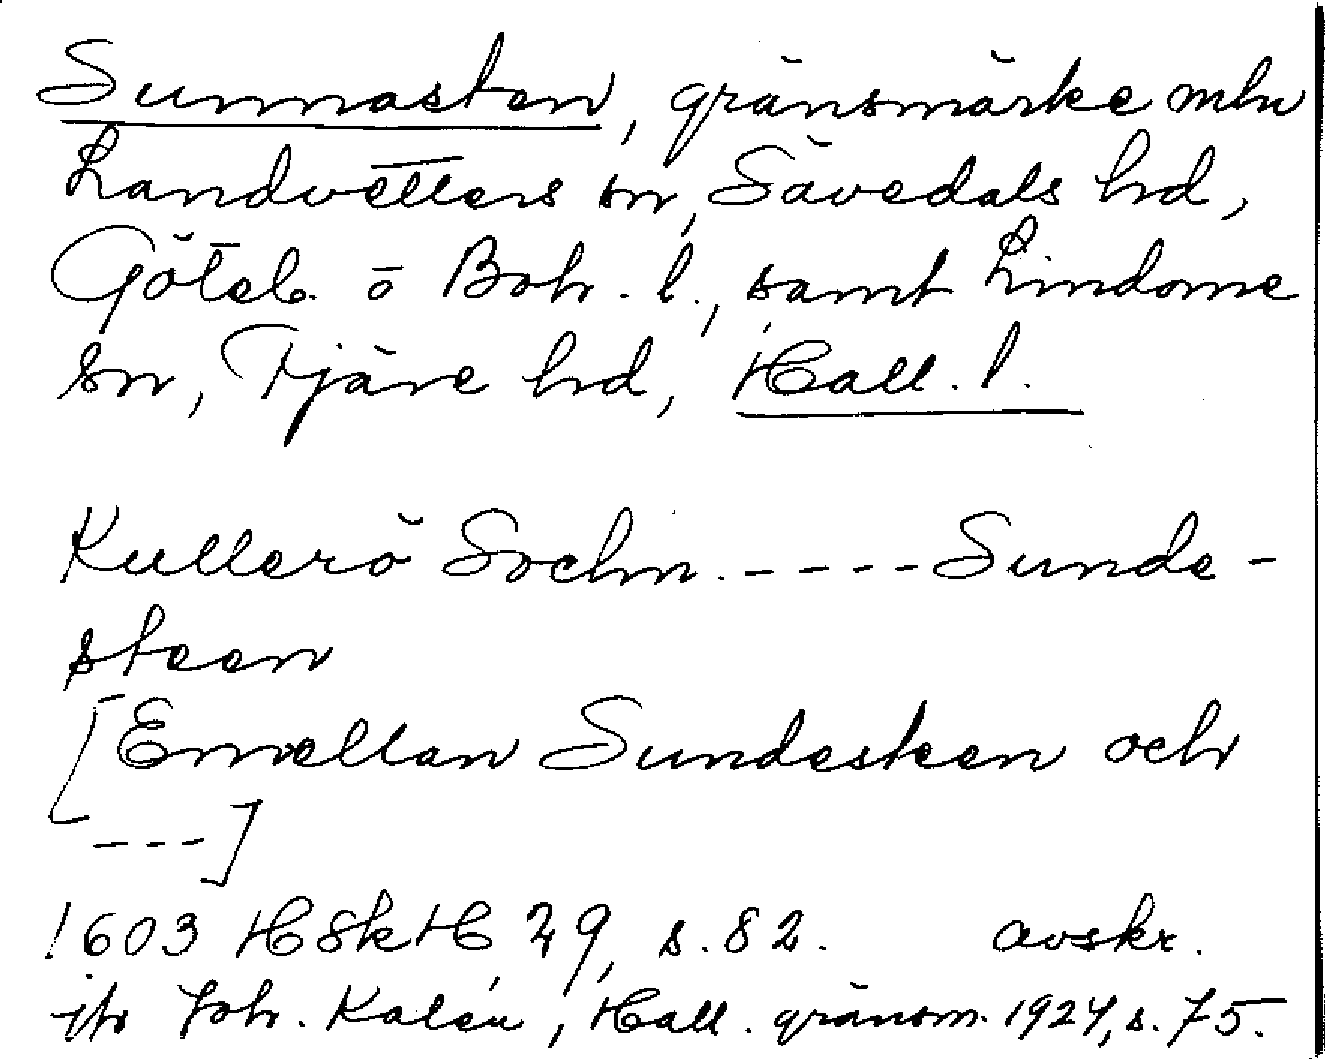 Sunnasten, gränsmärke mln
Landvetters sn, Sävedals hd,
Göteb. o Boh. l., samt Lindome
sn, Fjäre hd, Hall. l.
Kullerö Sochn. ---- Sunde-
steen
[Emellan Sundesteen och
---]
1603 HSkH 29, s. 82. avskr.
jfr Joh. Kalén, Hall. gränsm. 1924, s. 75.